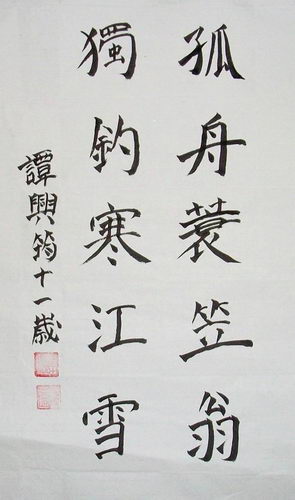 孤舟蓑笠翁
獨釣寒江雪
譚興筠十一歲